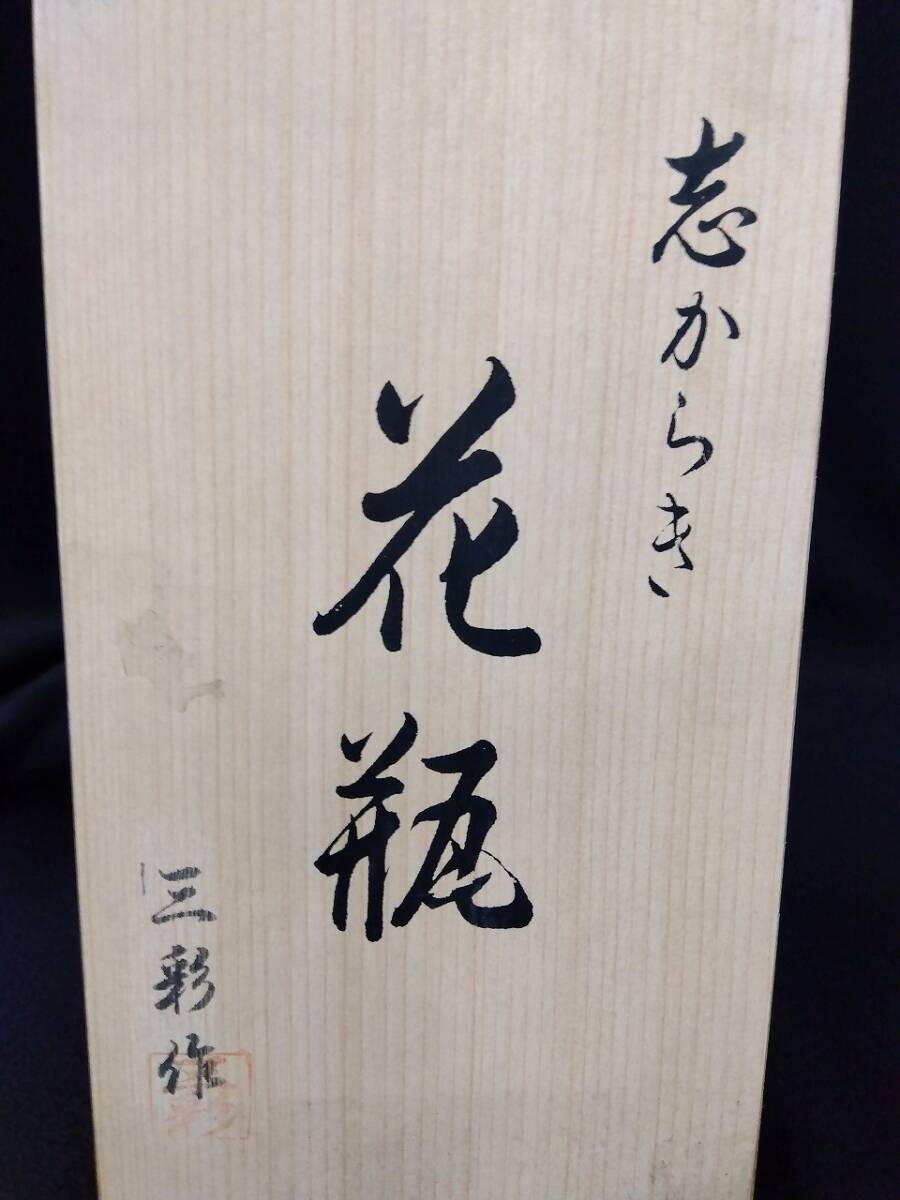 志からき
花瓶
三彩作